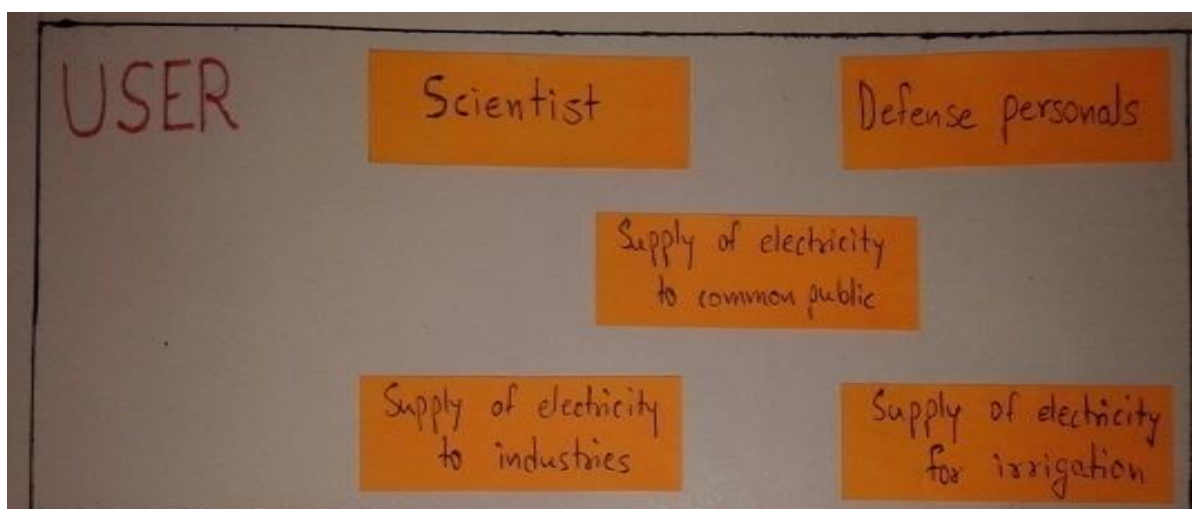 USER
Scientist
Defense personals
Supply of electricity
to common public
Supply of electricity
to industries
Supply of electricity
for irrigation